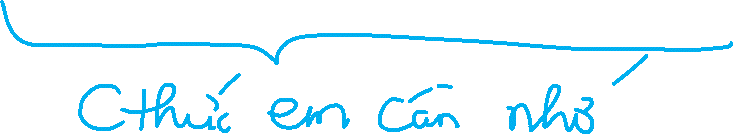 Cthức em cần nhớ